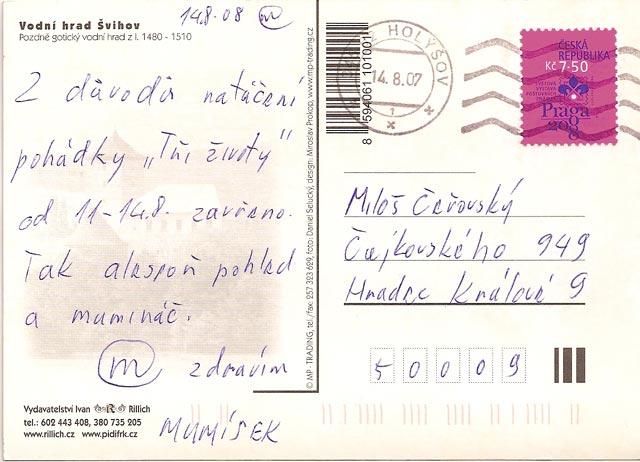 14.8.08 m
Vodní hrad Švihov
Pozdně gotický vodní hrad z l. 1480 - 1510
Z důvodů natáčení
pohádky „Tři životy"
od 11-14.8. zavřeno.
Tak alespoň pohled
a mumináč.
m zdravím
MUMÍSEK
Vydavatelství Ivan R Rillich
tel.: 602 443 408, 380 735 205
www.rillich.cz www.pidifrk.cz
© MP - TRADING, tel./fax: 257 323 629, foto: Daniel Selucký, design: Miroslav Prokop, www.mp-trading.cz
8 594061 101001
HOLÝŠOV
14.8.07
1
ČESKÁ
REPUBLIKA
Kč 7·50
Praga
2008
Miloš Čeřovský
Čajkovského 949
Hradec Králové 9
50009